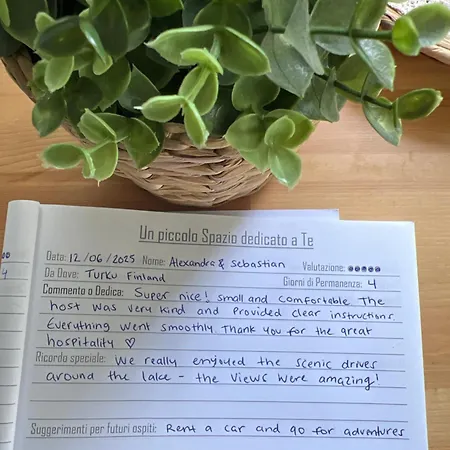 Un piccolo Spazio dedicato a Te
Data: 12/06/2025 Nome: Alexandra & Sebastian Valutazione:
Da Dove: Turku Finland Giorni di Permanenza: 4
Commento o Dedica: Super nice! small and comfortable. The
host was very kind and provided clear instructions.
Everything went smoothly Thank you for the great
hospitality ♡
Ricordo speciale: We really enjoyed the scenic drives
around the lake - the views were amazing!
Suggerimenti per futuri ospiti: Rent a car and go for adventures